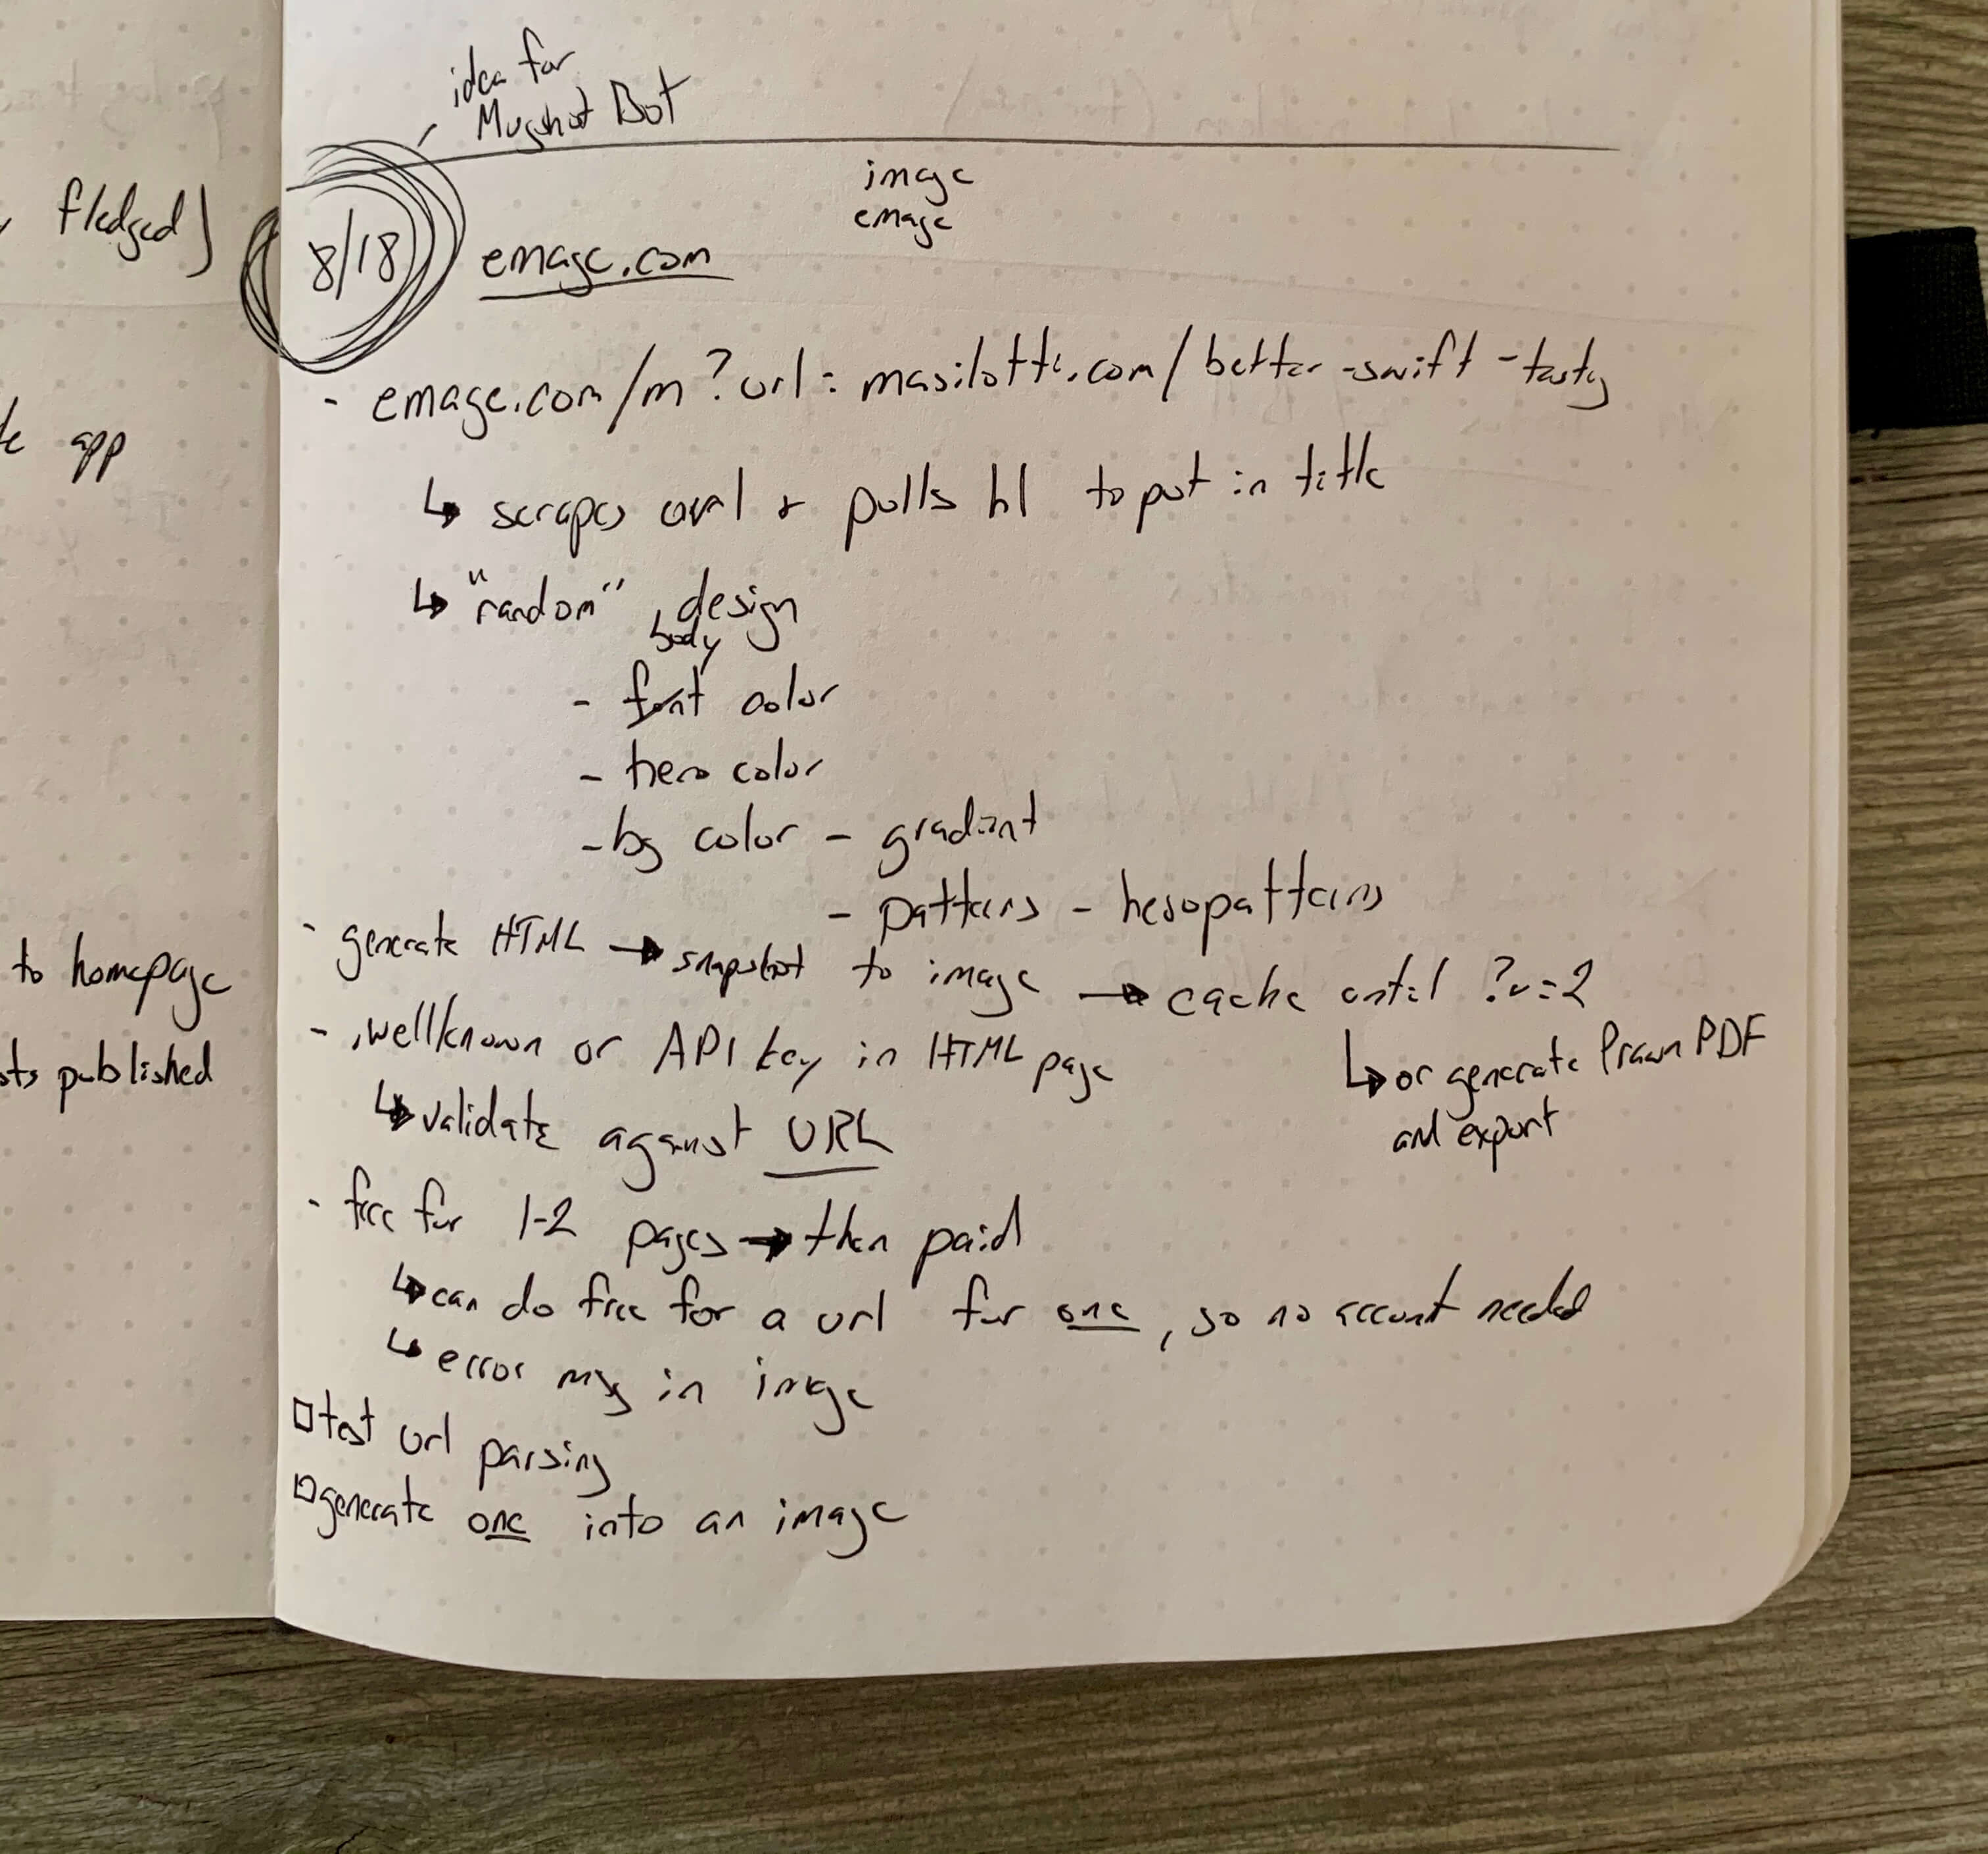 fledged)
app
to homepage
published
idea for
Mugshot Bot
image
emage
8/18 emage.com
- emage.com/m?url=masilotti.com/better-swift-
↳ scrapes url + pulls h1 to put in title
↳ "random" design
body
- font color
- hero color
- bg color - gradient
- patterns - heropatterns
- generate HTML → snapshot to image → cache until ?v=2
↳ or generate Prawn PDF
and export
- .wellknown or API key in HTML page
↳ validate against URL
- free for 1-2 pages → then paid
↳ can do free for a url for one, so no account needed
↳ error msg in image
□ test url parsing
□ generate one into an image